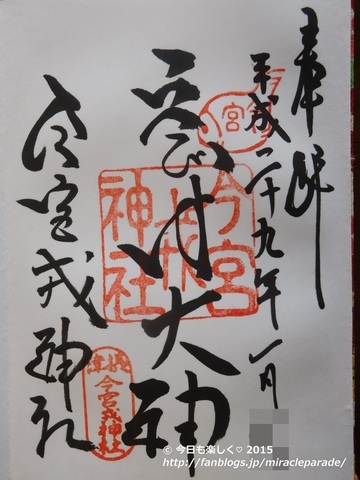 奉拝
平成二十九年一月
宮
大神
今宮戎神社
今宮戎神社
摂津
今宮戎神社
© 今日も楽しく♡ 2015
http://fanblogs.jp/miracleparade/